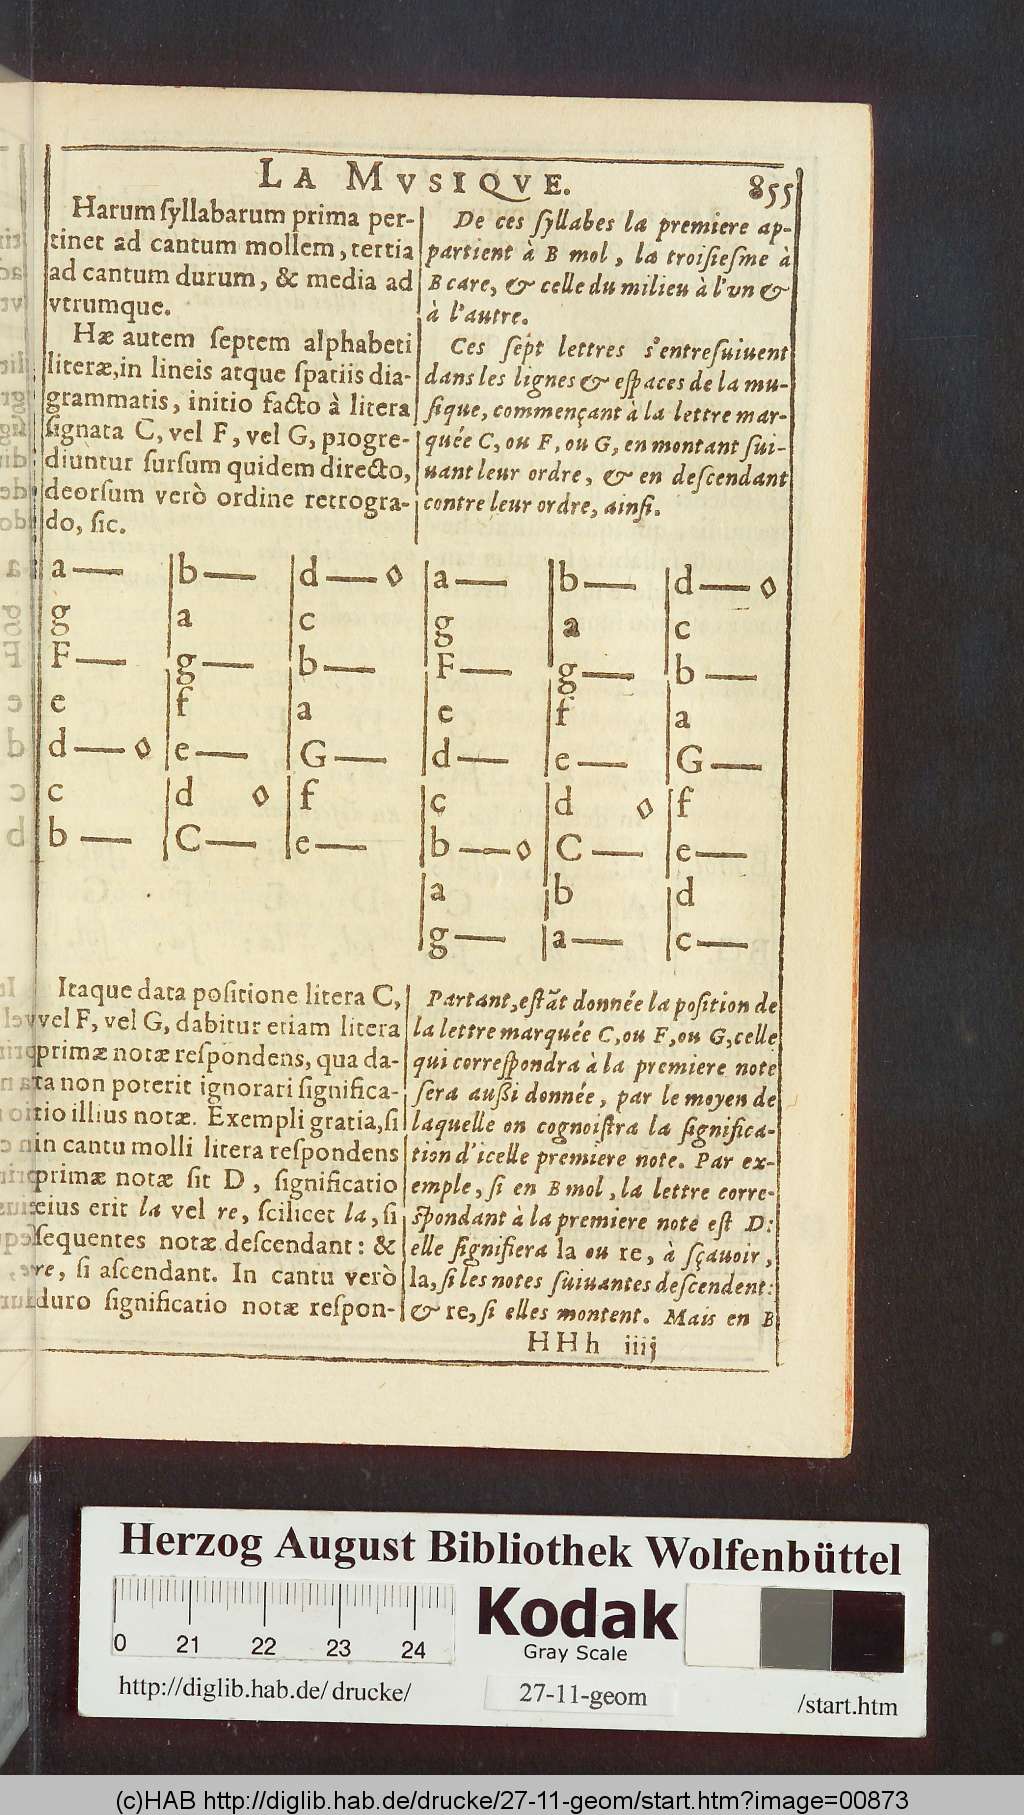 LA MVSIQVE. 855
Harum ſyllabarum prima per-
tinet ad cantum mollem, tertia
ad cantum durum, & media ad
vtrumque.
Hæ autem ſeptem alphabeti
literæ, in lineis atque ſpatiis dia-
grammatis, initio facto à litera
ſignata C, vel F, vel G, progre-
diuntur ſurſum quidem directo,
deorſum verò ordine retrogra-
do, ſic.
De ces ſyllabes la premiere ap-
partient à B mol, la troiſieſme à
B care, & celle du milieu à l'vn &
à l'autre.
Ces ſept lettres s'entreſuiuent
dans les lignes & eſpaces de la mu-
ſique, commençant à la lettre mar-
quée C, ou F, ou G, en montant ſui-
uant leur ordre, & en deſcendant
contre leur ordre, ainſi.
a b d a b d
g a c g a c
F g b F g b
e f a e f a
d e G d e G
c d f c d f
b C e b C e
a b d
g a c
Itaque data poſitione litera C,
vel F, vel G, dabitur etiam litera
primæ notæ reſpondens, qua da-
ta non poterit ignorari ſignifica-
tio illius notæ. Exempli gratia, ſi
in cantu molli litera reſpondens
primæ notæ ſit D, ſignificatio
eius erit la vel re, ſcilicet la, ſi
ſequentes notæ deſcendant: &
re, ſi aſcendant. In cantu verò
duro ſignificatio notæ reſpon-
Partant, eſtãt donnée la poſition de
la lettre marquée C, ou F, ou G, celle
qui correſpondra à la premiere note
ſera auſſi donnée, par le moyen de
laquelle on cognoiſtra la ſignifica-
tion d'icelle premiere note. Par ex-
emple, ſi en B mol, la lettre corre-
ſpondant à la premiere note eſt D:
elle ſignifiera la ou re, à ſçauoir,
la, ſi les notes ſuiuantes deſcendent:
& re, ſi elles montent. Mais en B
HHh iiij
Herzog August Bibliothek Wolfenbüttel
0 21 22 23 24
Kodak
Gray Scale
http://diglib.hab.de/drucke/
27-11-geom
/start.htm
(c)HAB http://diglib.hab.de/drucke/27-11-geom/start.htm?image=00873